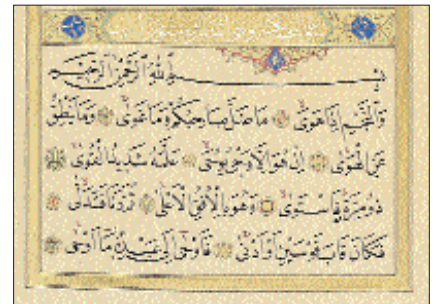 بسم الله الرحمن الرحيم
والنجم إذا هوى ما ضل صاحبكم وما غوى وما ينطق
عن الهوى إن هو إلا وحي يوحى علمه شديد القوى
ذو مرة فاستوى وهو بالأفق الأعلى ثم دنا فتدلى
فكان قاب قوسين أو أدنى فأوحى إلى عبده ما أوحى